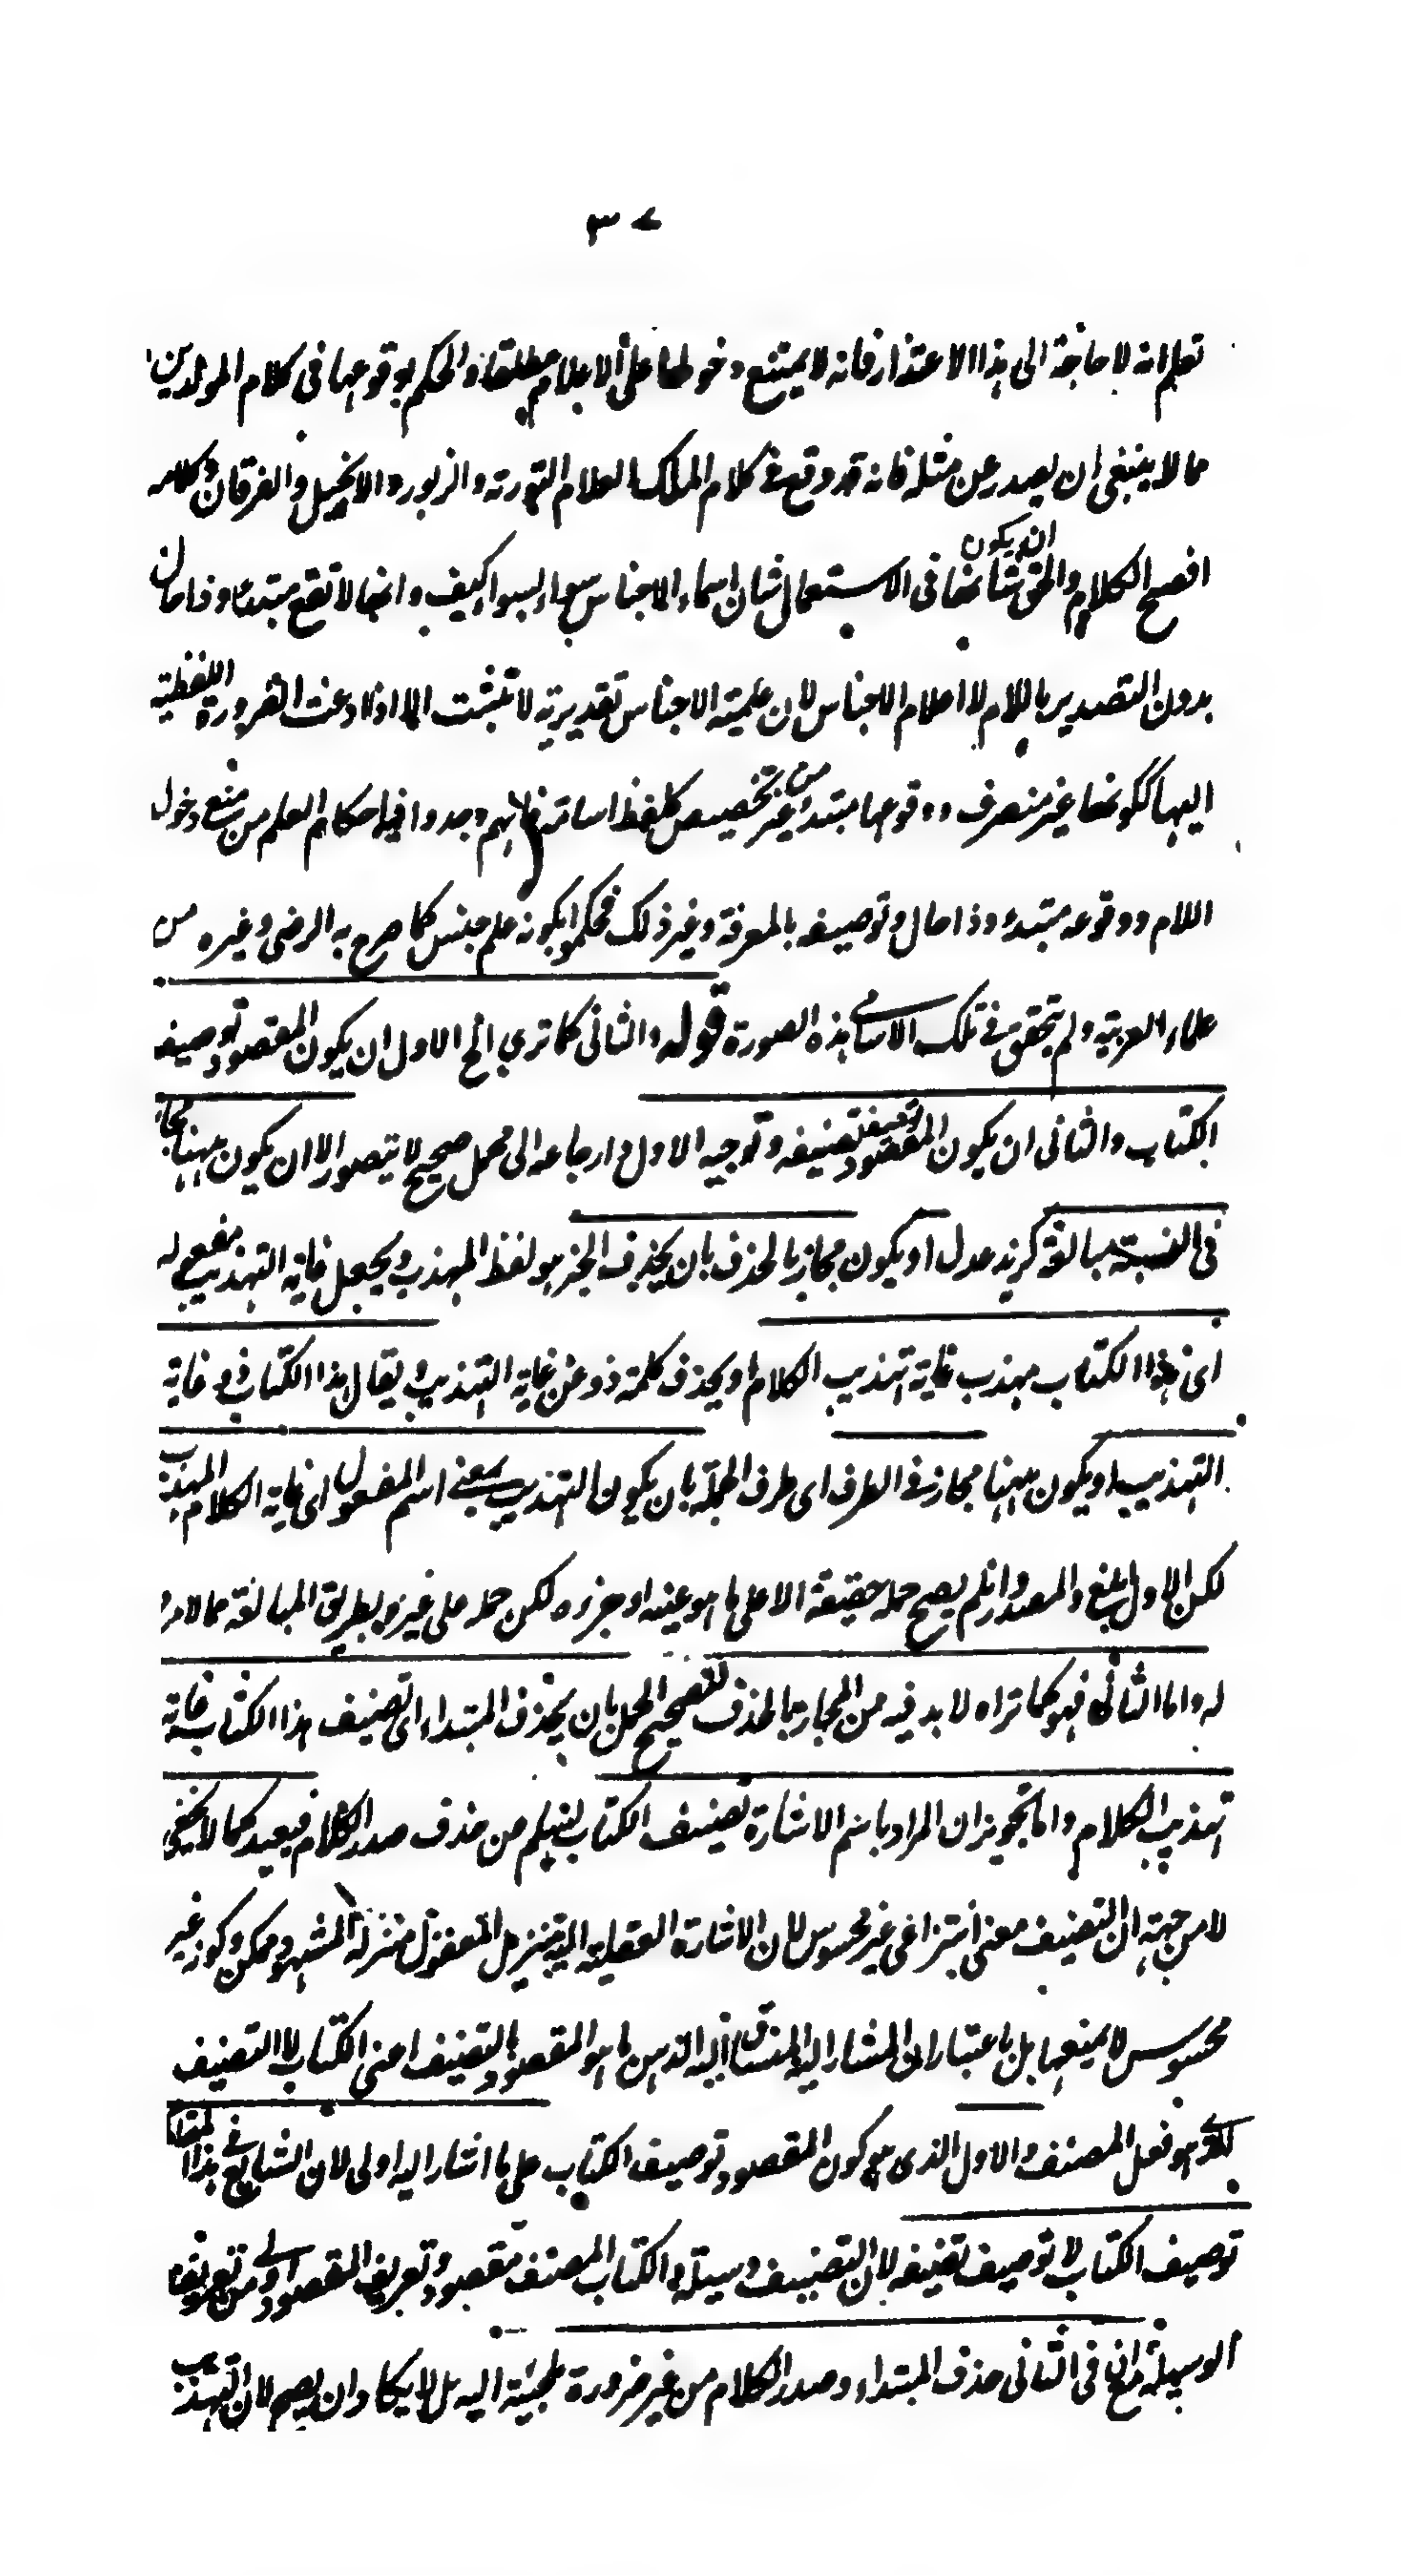 ٣٧
تعلم انه لا حاجة الى هذا الاعتذار فانه لا يمتنع دخولها على الاعلام مطلقا والحكم بوقوعها فى كلام المولدين
مما لا ينبغى ان يصدر عن مثله فانه قد وقع فى كلام الملك العلام التورته والزبور والانجيل والفرقان وكلامه
افصح الكلام والحق ان يكون شانها فى الاستعمال شان اسماء الاجناس سواء بسواء كيف وانها لا تقع مبتدءا وذا حال
بدون التصدير باللام لا اعلام الاجناس لان علمية الاجناس تقديرية لا تثبت الا اذا دعت الضرورة اللفظية
اليها ككونها غير منصرف ووقوعها مبتدء من غير تخصيص كلفظ اسامة فانهم وجدوا فيها احكام العلم من منع دخول
اللام ووقوعه مبتدء وذا حال وتوصيفه بالمعرفة وغير ذلك فحكموا بكونه علم جنس كما صرح به الرضى وغيره من
علماء العربية ولم يتحقق فى تلك الاسامى هذه الصورة قوله والثانى كما ترى الخ الاول ان يكون المقصود توصيف
الكتاب والثانى ان يكون المقصود توصيف تصنيفه وتوجيه الاول وارجاعه الى محمل صحيح لا يتصور الا ان يكون ههنا مجاز
فى النسبة مبالغة كزيد عدل او يكون مجاز بالحذف بان يحذف الخبر هو لفظ المهذب ويجعل غاية التهذيب مفعوله
اى هذا الكتاب مهذب غاية تهذيب الكلام او يحذف كلمة ذو عن غاية التهذيب ويقال هذا الكتاب ذو غاية
التهذيب او يكون ههنا مجاز فى الطرف اى طرف الجملة بان يكون التهذيب بمعنى اسم المفعول اى غاية الكلام المهذب
لكن الاول ابلغ والمصدر وان لم يصح حمله حقيقة الا على ما هو عينه او جزءه لكن حمله على غيره بطريق المبالغة مما لا مرد
له واما الثانى فهو كما تراه لا بد فيه من المجاز بالحذف لتصحيح الحمل بان يحذف المبتداء اى تصنيف هذا الكتاب غاية
تهذيب الكلام واما تجويز ان المراد باسم الاشارة تصنيف الكتاب ليسلم من حذف صدر الكلام فبعيد كما لا يخفى
لا من جهة ان التصنيف معنى انتزاعى غير محسوس لان الاشارة العقلية اليه بتنزيل المعقول منزلة المشهود ممكن وكونه غير
محسوس لا يمنعها بل باعتبار ان المشار اليه المنساق اليه الذهن ما هو المقصود بالتصنيف اعنى الكتاب لا التصنيف
الذى هو فعل المصنف والاول الذى هو كون المقصود توصيف الكتاب على ما اشار اليه اولى لان الشايع فى هذا المقام
توصيف الكتاب لا توصيف تصنيفه لان التصنيف وسيلة والكتاب المصنف مقصود وتعريف المقصود اولى من تعريف
الوسيلة وان فى الثانى حذف المبتداء وصدر الكلام من غير ضرورة ملجئة اليه بل لا يكاد ان يصح لان التهذيب